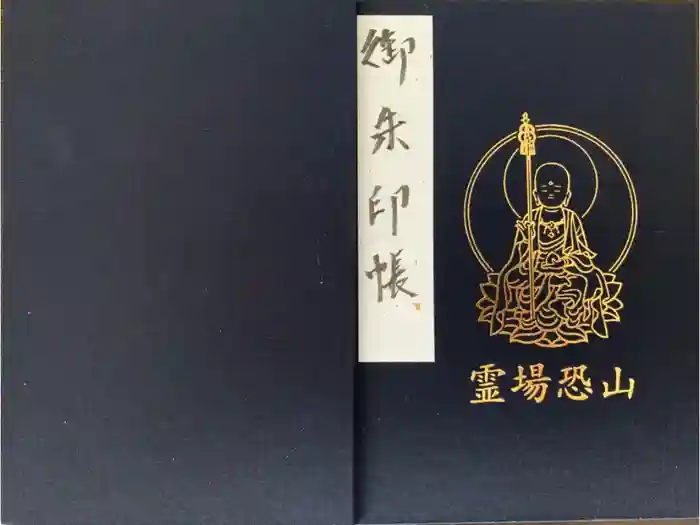 御朱印帳
霊場恐山